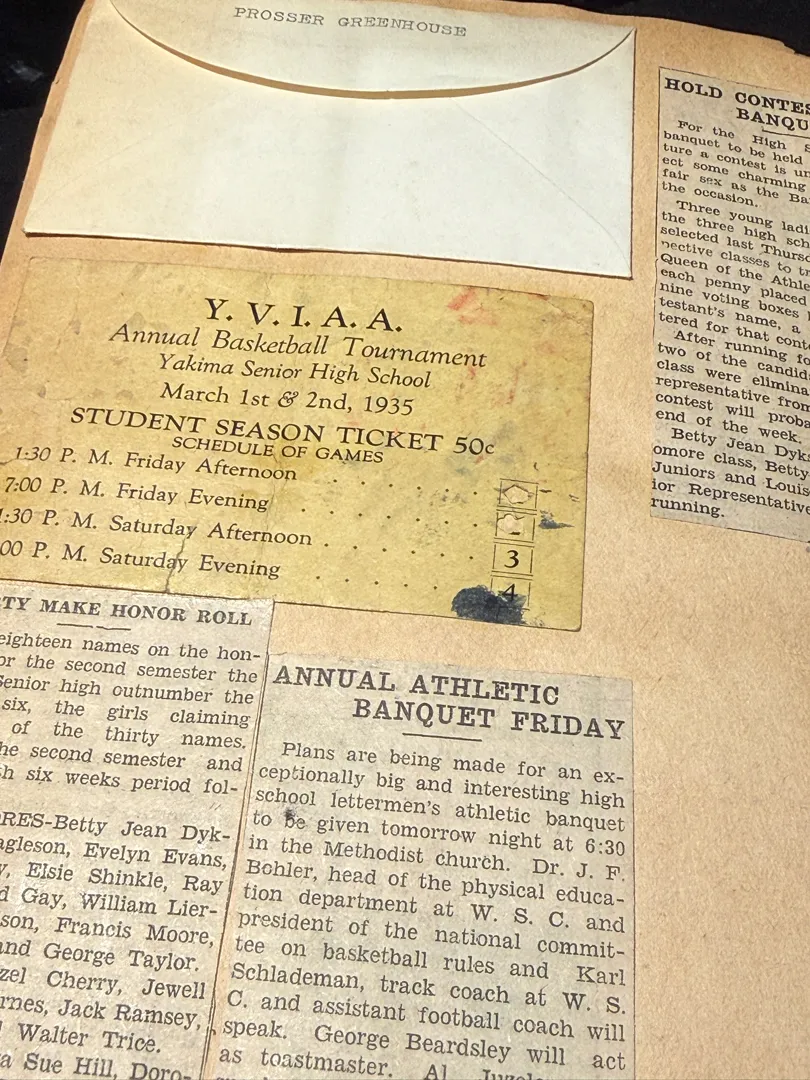 PROSSER GREENHOUSE
Y. V. I. A. A.
Annual Basketball Tournament
Yakima Senior High School
March 1st & 2nd, 1935
STUDENT SEASON TICKET 50c
SCHEDULE OF GAMES
1:30 P. M. Friday Afternoon
7:00 P. M. Friday Evening
:30 P. M. Saturday Afternoon 3
00 P. M. Saturday Evening 4
HOLD CONTES
BANQU
For the High S
banquet to be held
ture a contest is un
ect some charming
fair sex as the Ba
the occasion.
Three young ladi
the three high sch
selected last Thursd
pective classes to tr
Queen of the Athle
each penny placed
nine voting boxes
testant's name, a
tered for that cont
After running fo
two of the candid
class were elimina
representative from
contest will proba
end of the week.
Betty Jean Dyks
omore class, Betty
Juniors and Louis
ior Representative
running.
TY MAKE HONOR ROLL
eighteen names on the hon-
or the second semester the
Senior high outnumber the
six, the girls claiming
of the thirty names.
he second semester and
h six weeks period fol-
RES-Betty Jean Dyk-
agleson, Evelyn Evans,
y, Elsie Shinkle, Ray
d Gay, William Lier-
son, Francis Moore,
and George Taylor.
zel Cherry, Jewell
rnes, Jack Ramsey,
Walter Trice.
a Sue Hill, Doro-
ANNUAL ATHLETIC
BANQUET FRIDAY
Plans are being made for an ex-
ceptionally big and interesting high
school lettermen's athletic banquet
to be given tomorrow night at 6:30
in the Methodist church. Dr. J. F.
Bohler, head of the physical educa-
tion department at W. S. C. and
president of the national commit-
tee on basketball rules and Karl
Schlademan, track coach at W. S.
C. and assistant football coach will
speak. George Beardsley will act
as toastmaster. Al